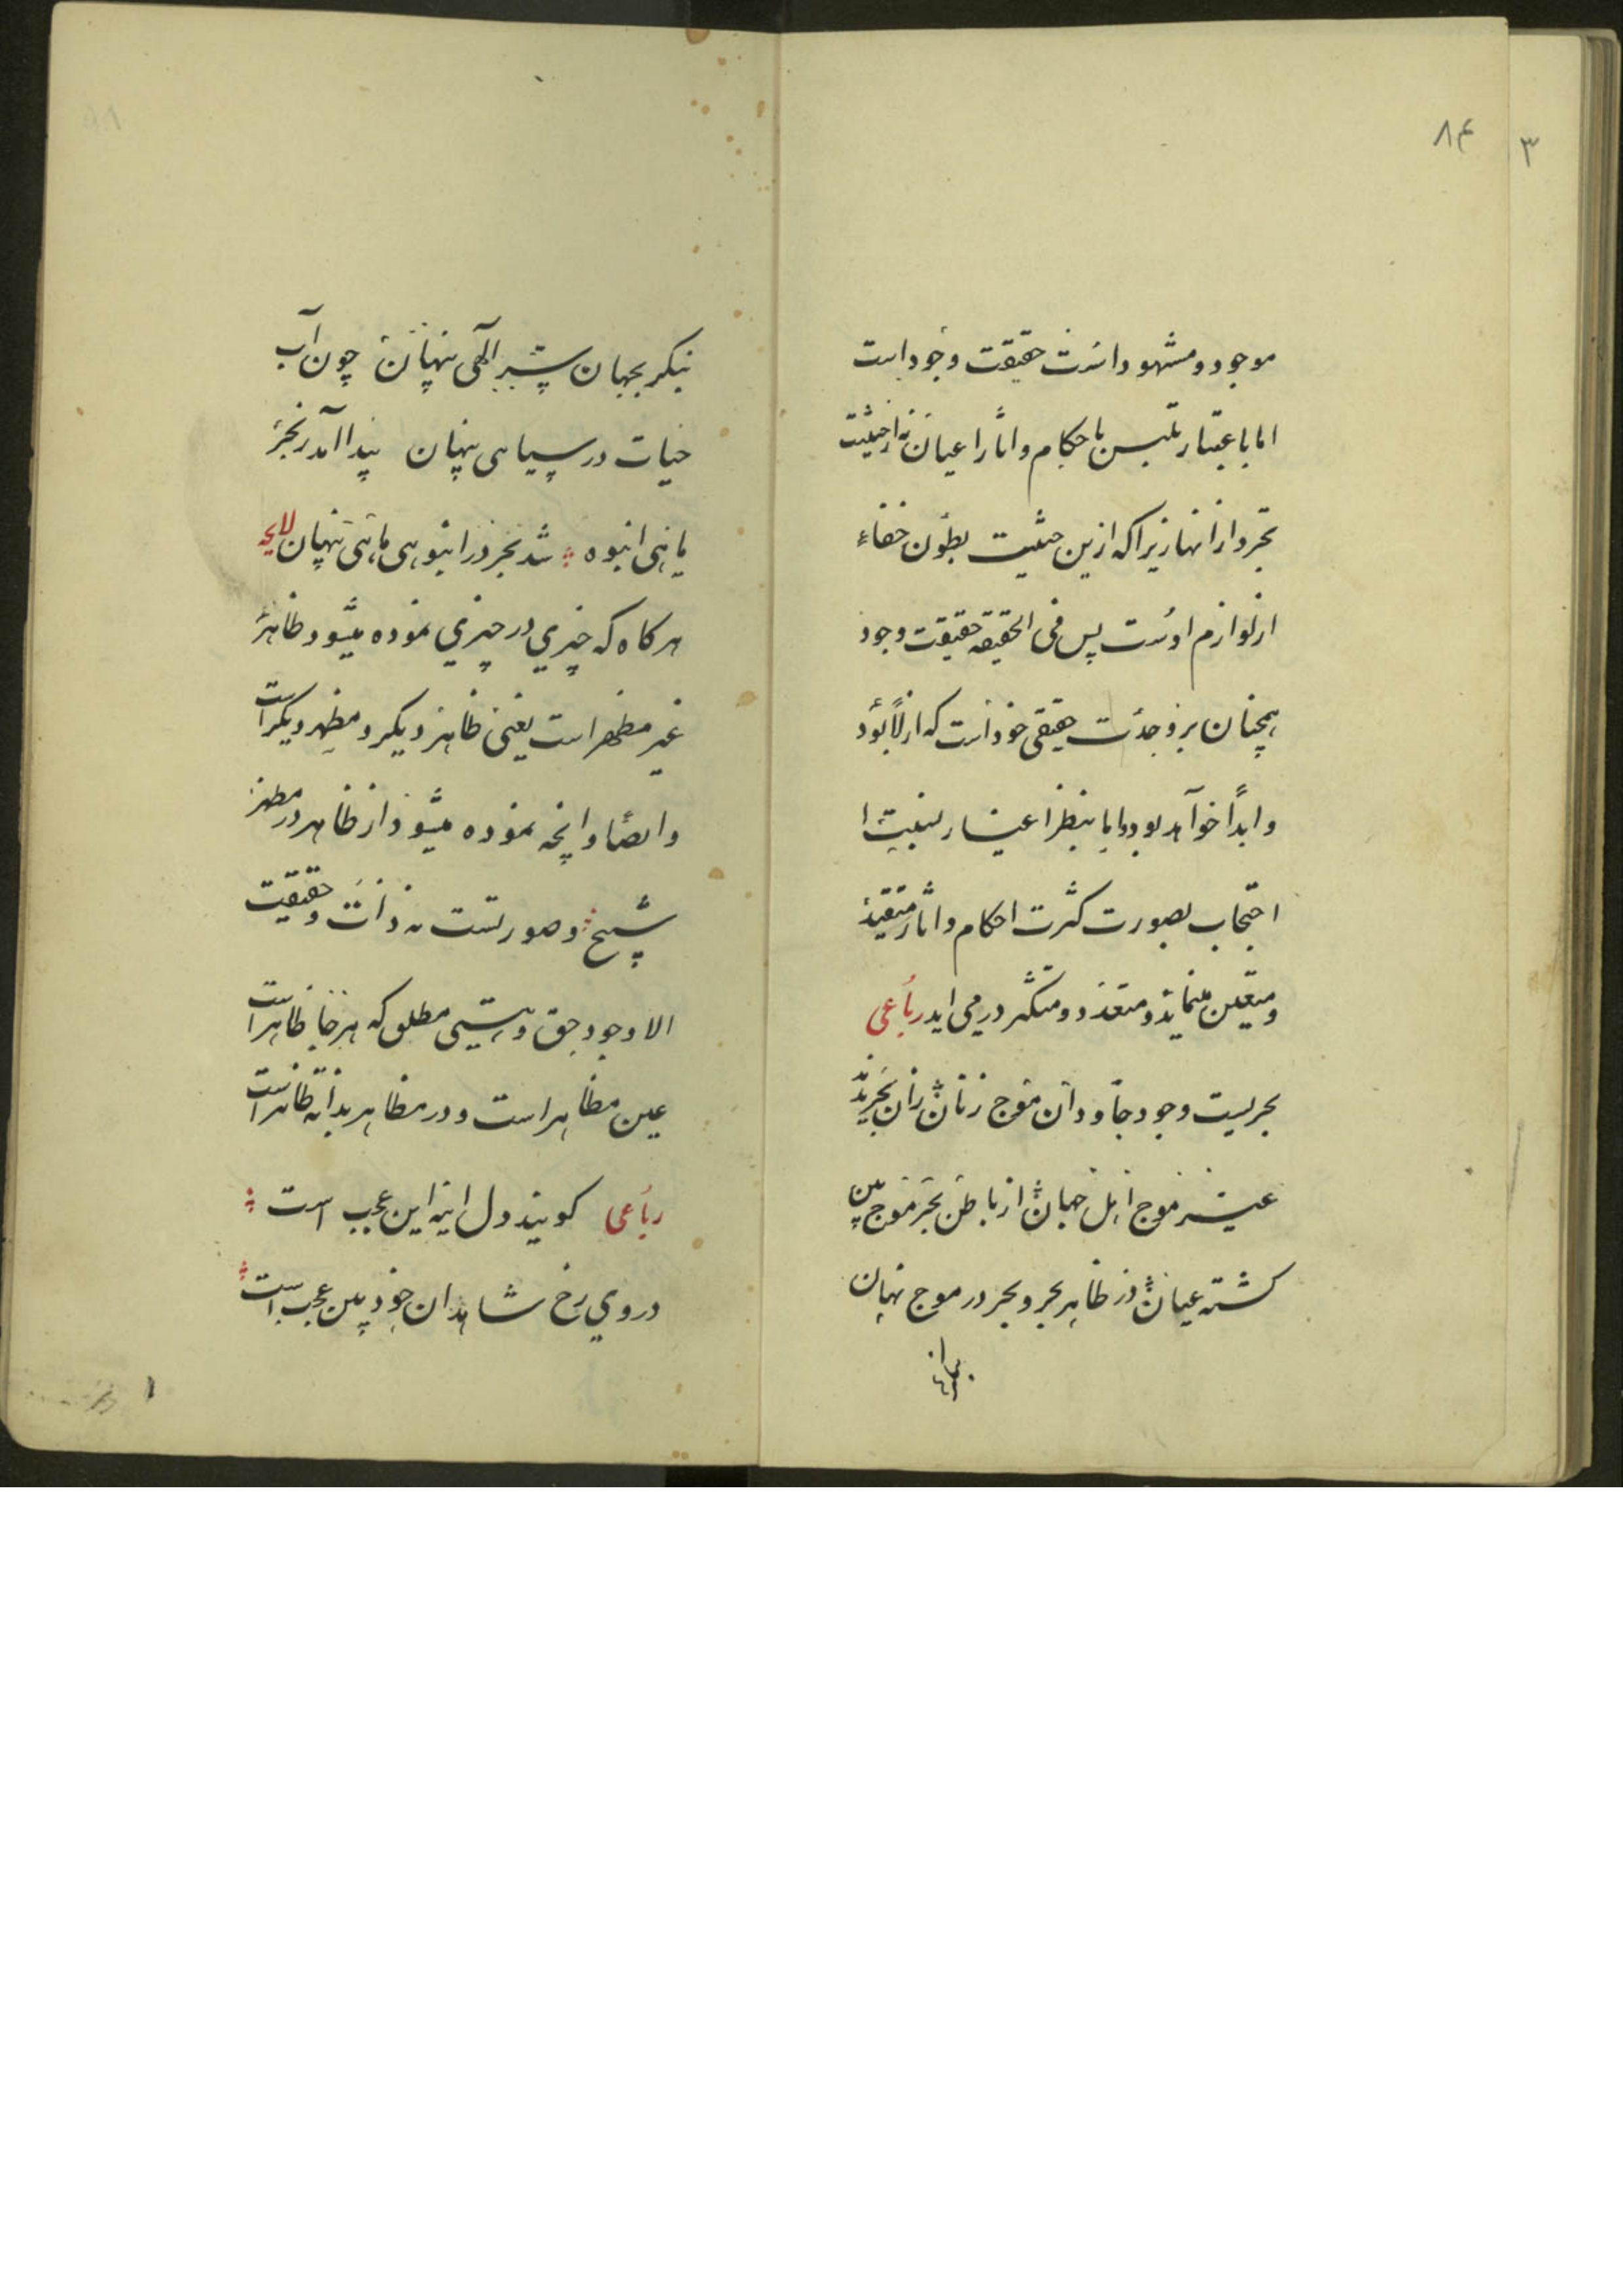 ۸۴
۳
موجود و مشهود است حقیقت وجود است
اما باعتبار تلبس باحکام و اثار اعیان نه از حیثیت
تجرد از انها زیرا که ازین حیثیت بطون خفاء
از لوازم اوست پس فی الحقیقه حقیقت وجود
همچنان بر وحدت حقیقی خود است که ازلاً بود
و ابداً خواهد بود اما بنظر اغیار بنسبت ا
احتجاب بصورت کثرت احکام و اثار متقید
و متعین مینماید و متعدد و متکثر درمی اید رباعی
بحریست وجود جاودان موج زنان زان بحر ندید
غیر موج اهل جهان از باطن بحر موج بین
کشته عیان در ظاهر بحر و بحر در موج نهان
بنکر بجهان سر الهی پنهان چون آب
حیات در سیاهی پنهان پیدا آمد ز بحر
ماهی انبوه شد بحر در انبوهی ماهی پنهان لایحه
هر کاه که چیزی در چیزی نموده میشود ظاهر
غیر مظهر است یعنی ظاهر دیکر و مظهر دیکر است
و ایضا و انچه نموده میشود از ظاهر در مظهر
شبح و صورتست نه ذات و حقیقت
الا وجود حق و هستی مطلق که هر جا ظاهر است
عین مظاهر است و در مظاهر بذاته ظاهر است
رباعی کویند دل اینه این عجب است
در وی رخ شاهدان خود بین عجب است